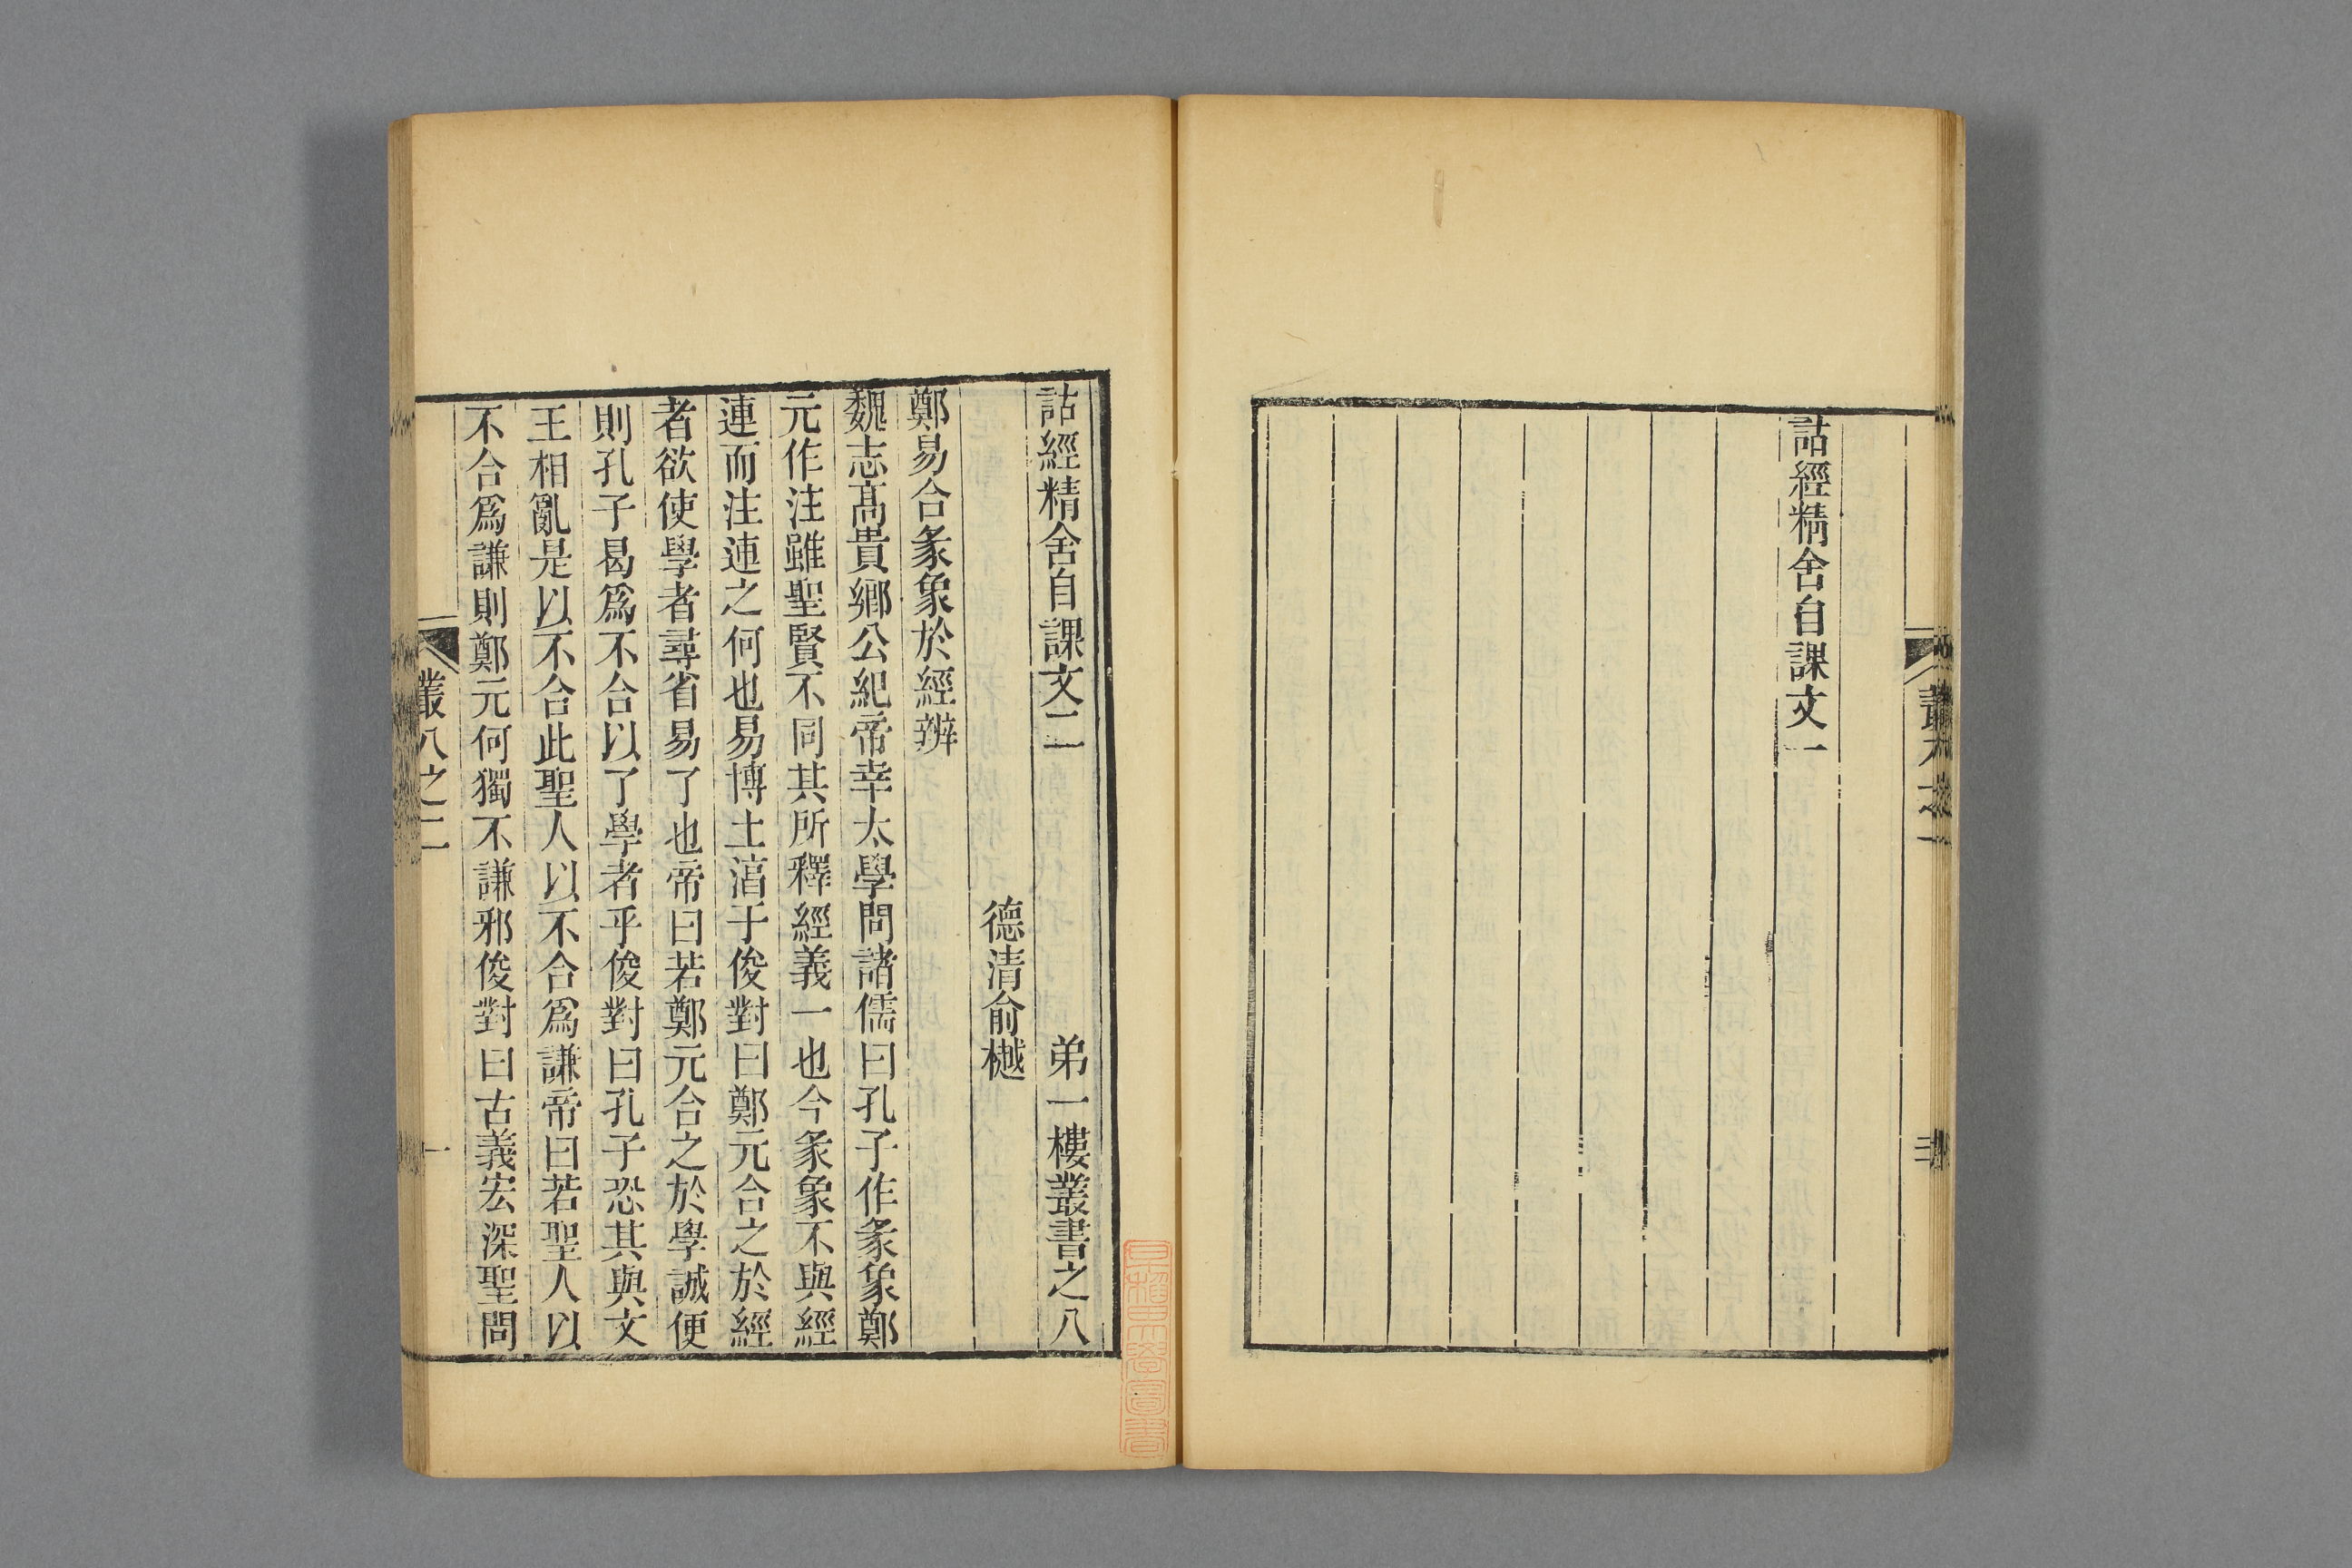 詁經精舍自課文一
詁經精舍自課文二 弟一樓叢書之八
德清俞樾
鄭易合彖象於經辨
魏志高貴鄉公紀帝幸太學問諸儒曰孔子作彖象鄭
元作注雖聖賢不同其所釋經義一也今彖象不與經
連而注連之何也易博士淳于俊對曰鄭元合之於經
者欲使學者尋省易了也帝曰若鄭元合之於學誠便
則孔子曷爲不合以了學者乎俊對曰孔子恐其與文
王相亂是以不合此聖人以不合爲謙帝曰若聖人以
不合爲謙則鄭元何獨不謙邪俊對曰古義宏深聖問
叢八之二 一
早稲田大學圖書